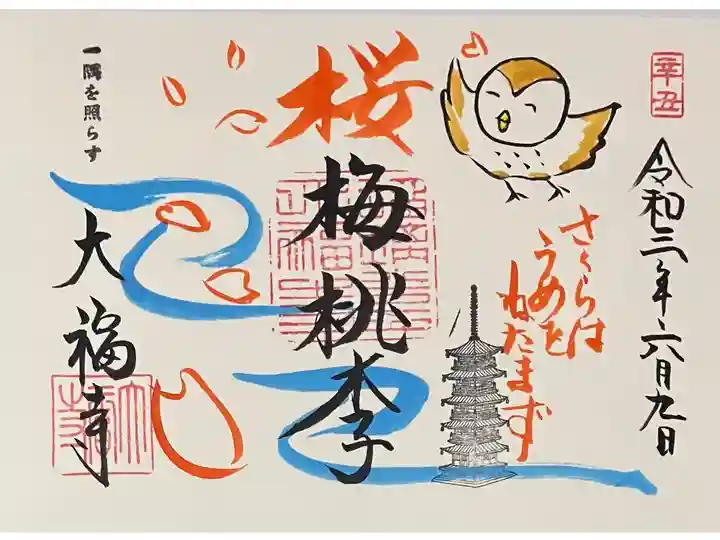 辛丑
令和三年六月九日
さくらは
うめを
ねたまず
桜梅桃李
一隅を照らす
大福寺